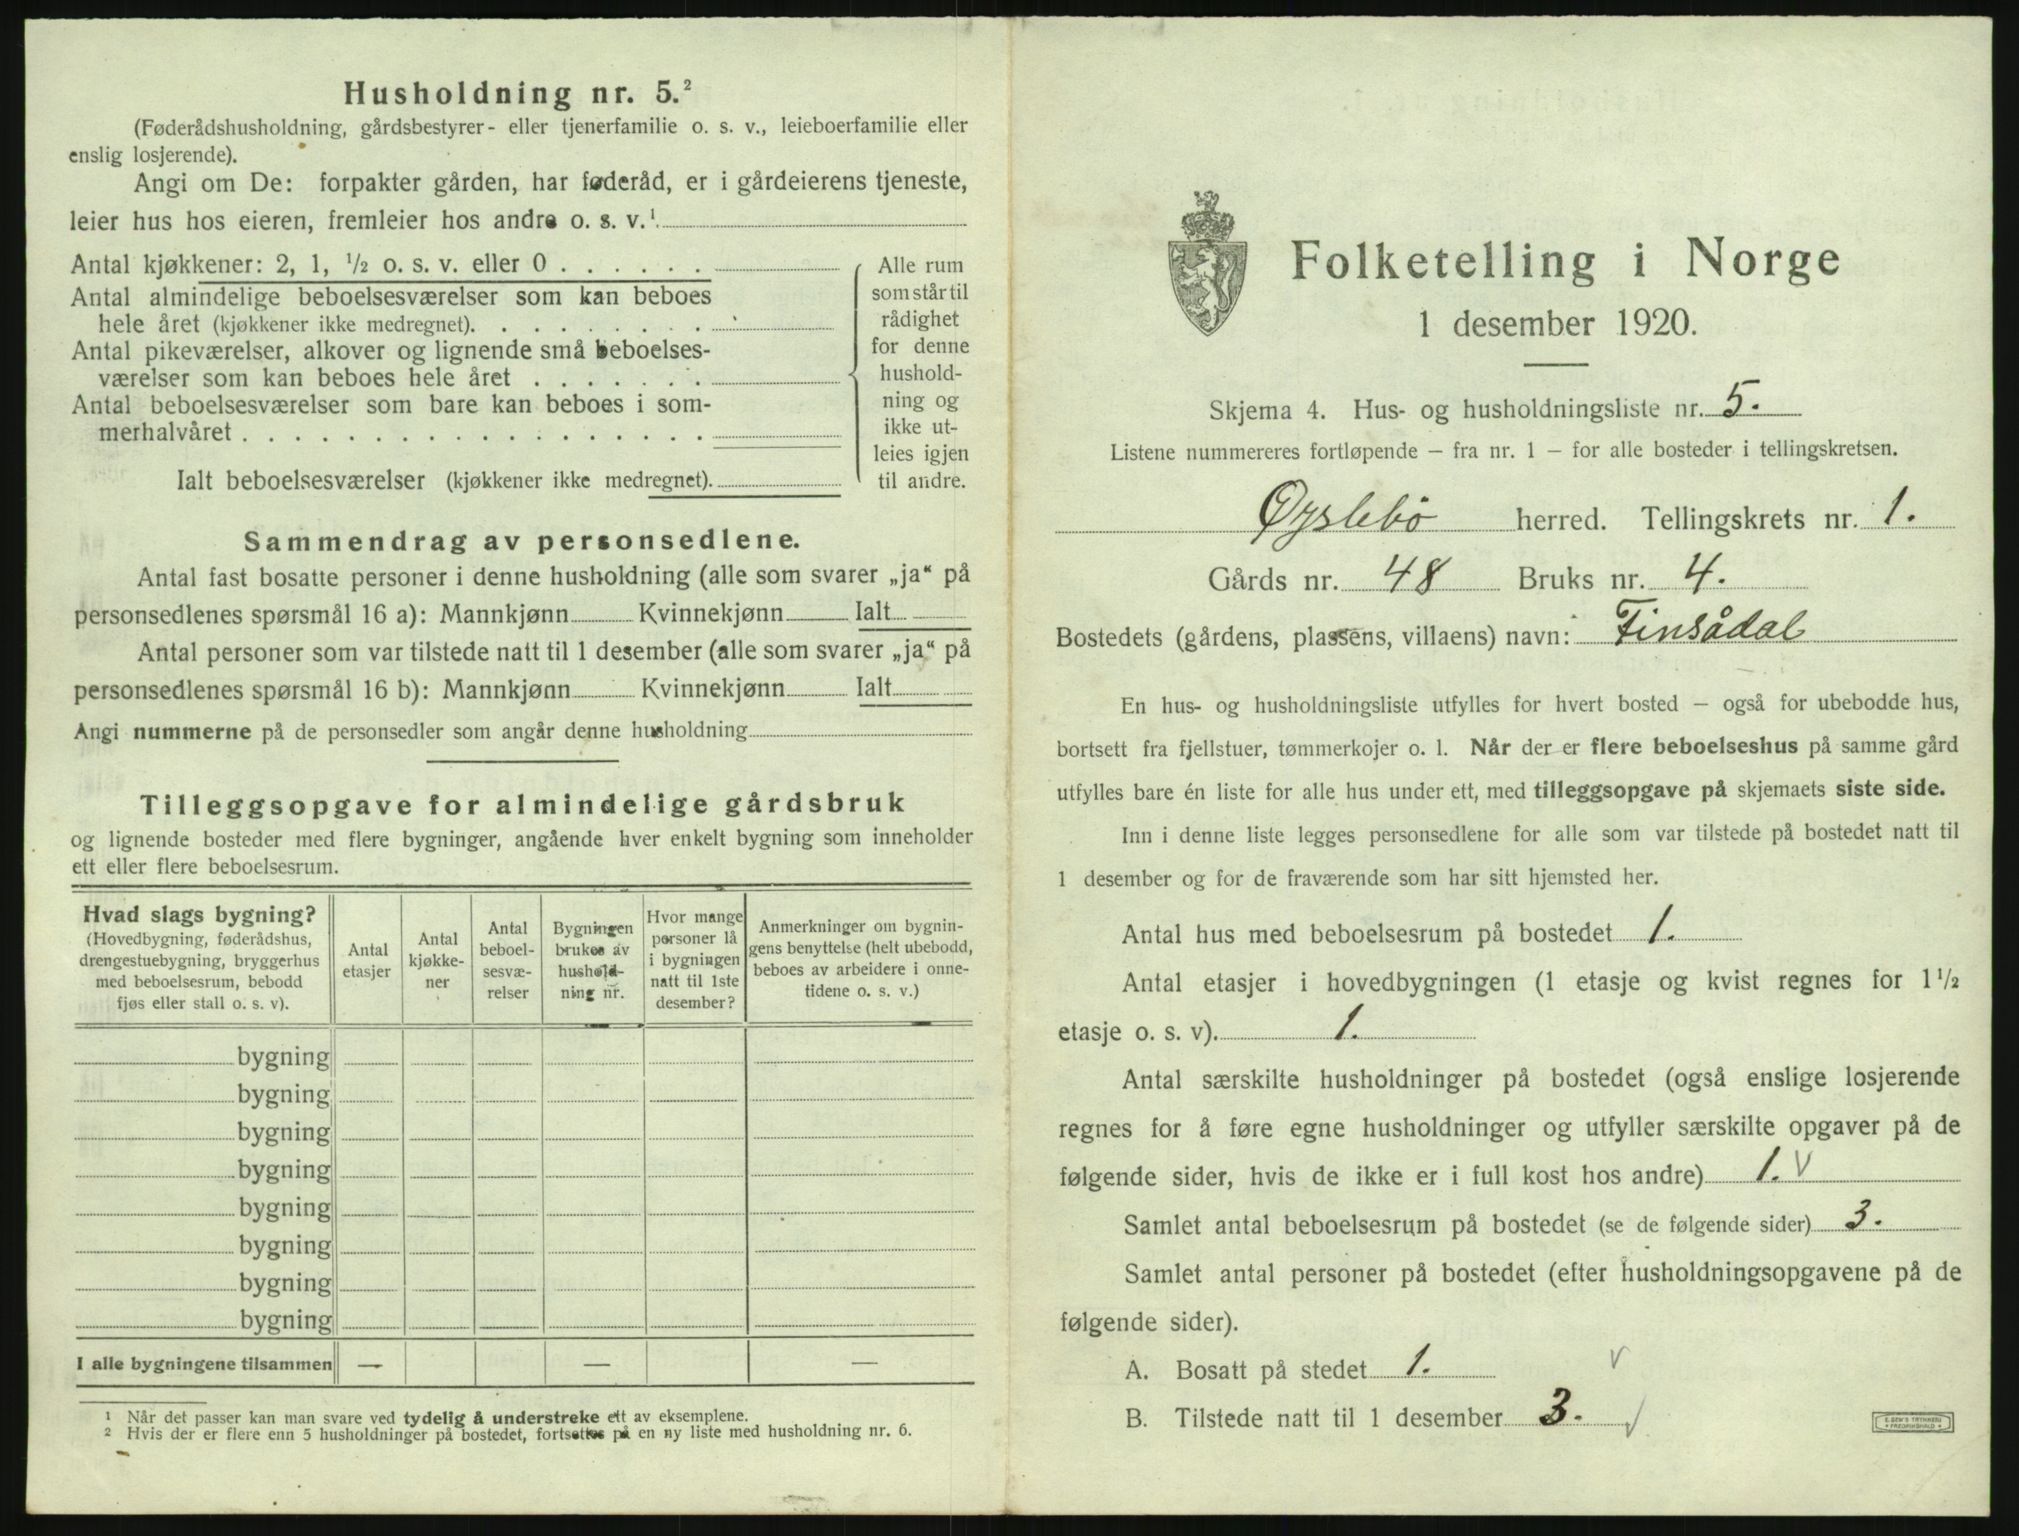 Husholdning nr. 5.²
(Føderådshusholdning, gårdsbestyrer- eller tjenerfamilie o. s. v., leieboerfamilie eller
enslig losjerende).
Angi om De: forpakter gården, har føderåd, er i gårdeierens tjeneste,
leier hus hos eieren, fremleier hos andre o. s. v.¹
Antal kjøkkener: 2, 1, ½ o. s. v. eller 0 . . . . . .
Antal almindelige beboelsesværelser som kan beboes
hele året (kjøkkener ikke medregnet). . . . . . . . .
Antal pikeværelser, alkover og lignende små beboelses-
værelser som kan beboes hele året . . . . . . .
Antal beboelsesværelser som bare kan beboes i som-
merhalvåret . . . . . . . . . . . . . . . . . .
Ialt beboelsesværelser (kjøkkener ikke medregnet).
Alle rum
som står til
rådighet
for denne
hushold-
ning og
ikke ut-
leies igjen
til andre.
Sammendrag av personsedlene.
Antal fast bosatte personer i denne husholdning (alle som svarer „ja“ på
personsedlenes spørsmål 16 a): Mannkjønn Kvinnekjønn Ialt
Antal personer som var tilstede natt til 1 desember (alle som svarer „ja“ på
personsedlenes spørsmål 16 b): Mannkjønn Kvinnekjønn Ialt
Angi nummerne på de personsedler som angår denne husholdning
Tilleggsopgave for almindelige gårdsbruk
og lignende bosteder med flere bygninger, angående hver enkelt bygning som inneholder
ett eller flere beboelsesrum.
Hvad slags bygning?
(Hovedbygning, føderådshus,
drengestuebygning, bryggerhus
med beboelsesrum, bebodd
fjøs eller stall o. s. v).
Antal
etasjer
Antal
kjøkke-
ner
Antal
beboel-
sesvæ-
relser
Bygningen
brukes av
hushold-
ning nr.
Hvor mange
personer lå
i bygningen
natt til 1ste
desember?
Anmerkninger om bygnin-
gens benyttelse (helt ubebodd,
beboes av arbeidere i onne-
tidene o. s. v.)
bygning
bygning
bygning
bygning
bygning
bygning
bygning
bygning
I alle bygningene tilsammen — — —
¹ Når det passer kan man svare ved tydelig å understreke ett av eksemplene.
² Hvis der er flere enn 5 husholdninger på bostedet, fortsettes på en ny liste med husholdning nr. 6.
Folketelling i Norge
1 desember 1920.
Skjema 4. Hus- og husholdningsliste nr. 5.
Listene nummereres fortløpende — fra nr. 1 — for alle bosteder i tellingskretsen.
Øyslebö herred. Tellingskrets nr. 1.
Gårds nr. 48 Bruks nr. 4.
Bostedets (gårdens, plassens, villaens) navn: Finsådal
En hus- og husholdningsliste utfylles for hvert bosted — også for ubebodde hus,
bortsett fra fjellstuer, tømmerkojer o. l. Når der er flere beboelseshus på samme gård
utfylles bare én liste for alle hus under ett, med tilleggsopgave på skjemaets siste side.
Inn i denne liste legges personsedlene for alle som var tilstede på bostedet natt til
1 desember og for de fraværende som har sitt hjemsted her.
Antal hus med beboelsesrum på bostedet 1.
Antal etasjer i hovedbygningen (1 etasje og kvist regnes for 1½
etasje o. s. v). 1.
Antal særskilte husholdninger på bostedet (også enslige losjerende
regnes for å føre egne husholdninger og utfyller særskilte opgaver på de
følgende sider, hvis de ikke er i full kost hos andre) 1. v
Samlet antal beboelsesrum på bostedet (se de følgende sider) 3.
Samlet antal personer på bostedet (efter husholdningsopgavene på de
følgende sider).
A. Bosatt på stedet 1. v
B. Tilstede natt til 1 desember 3. v